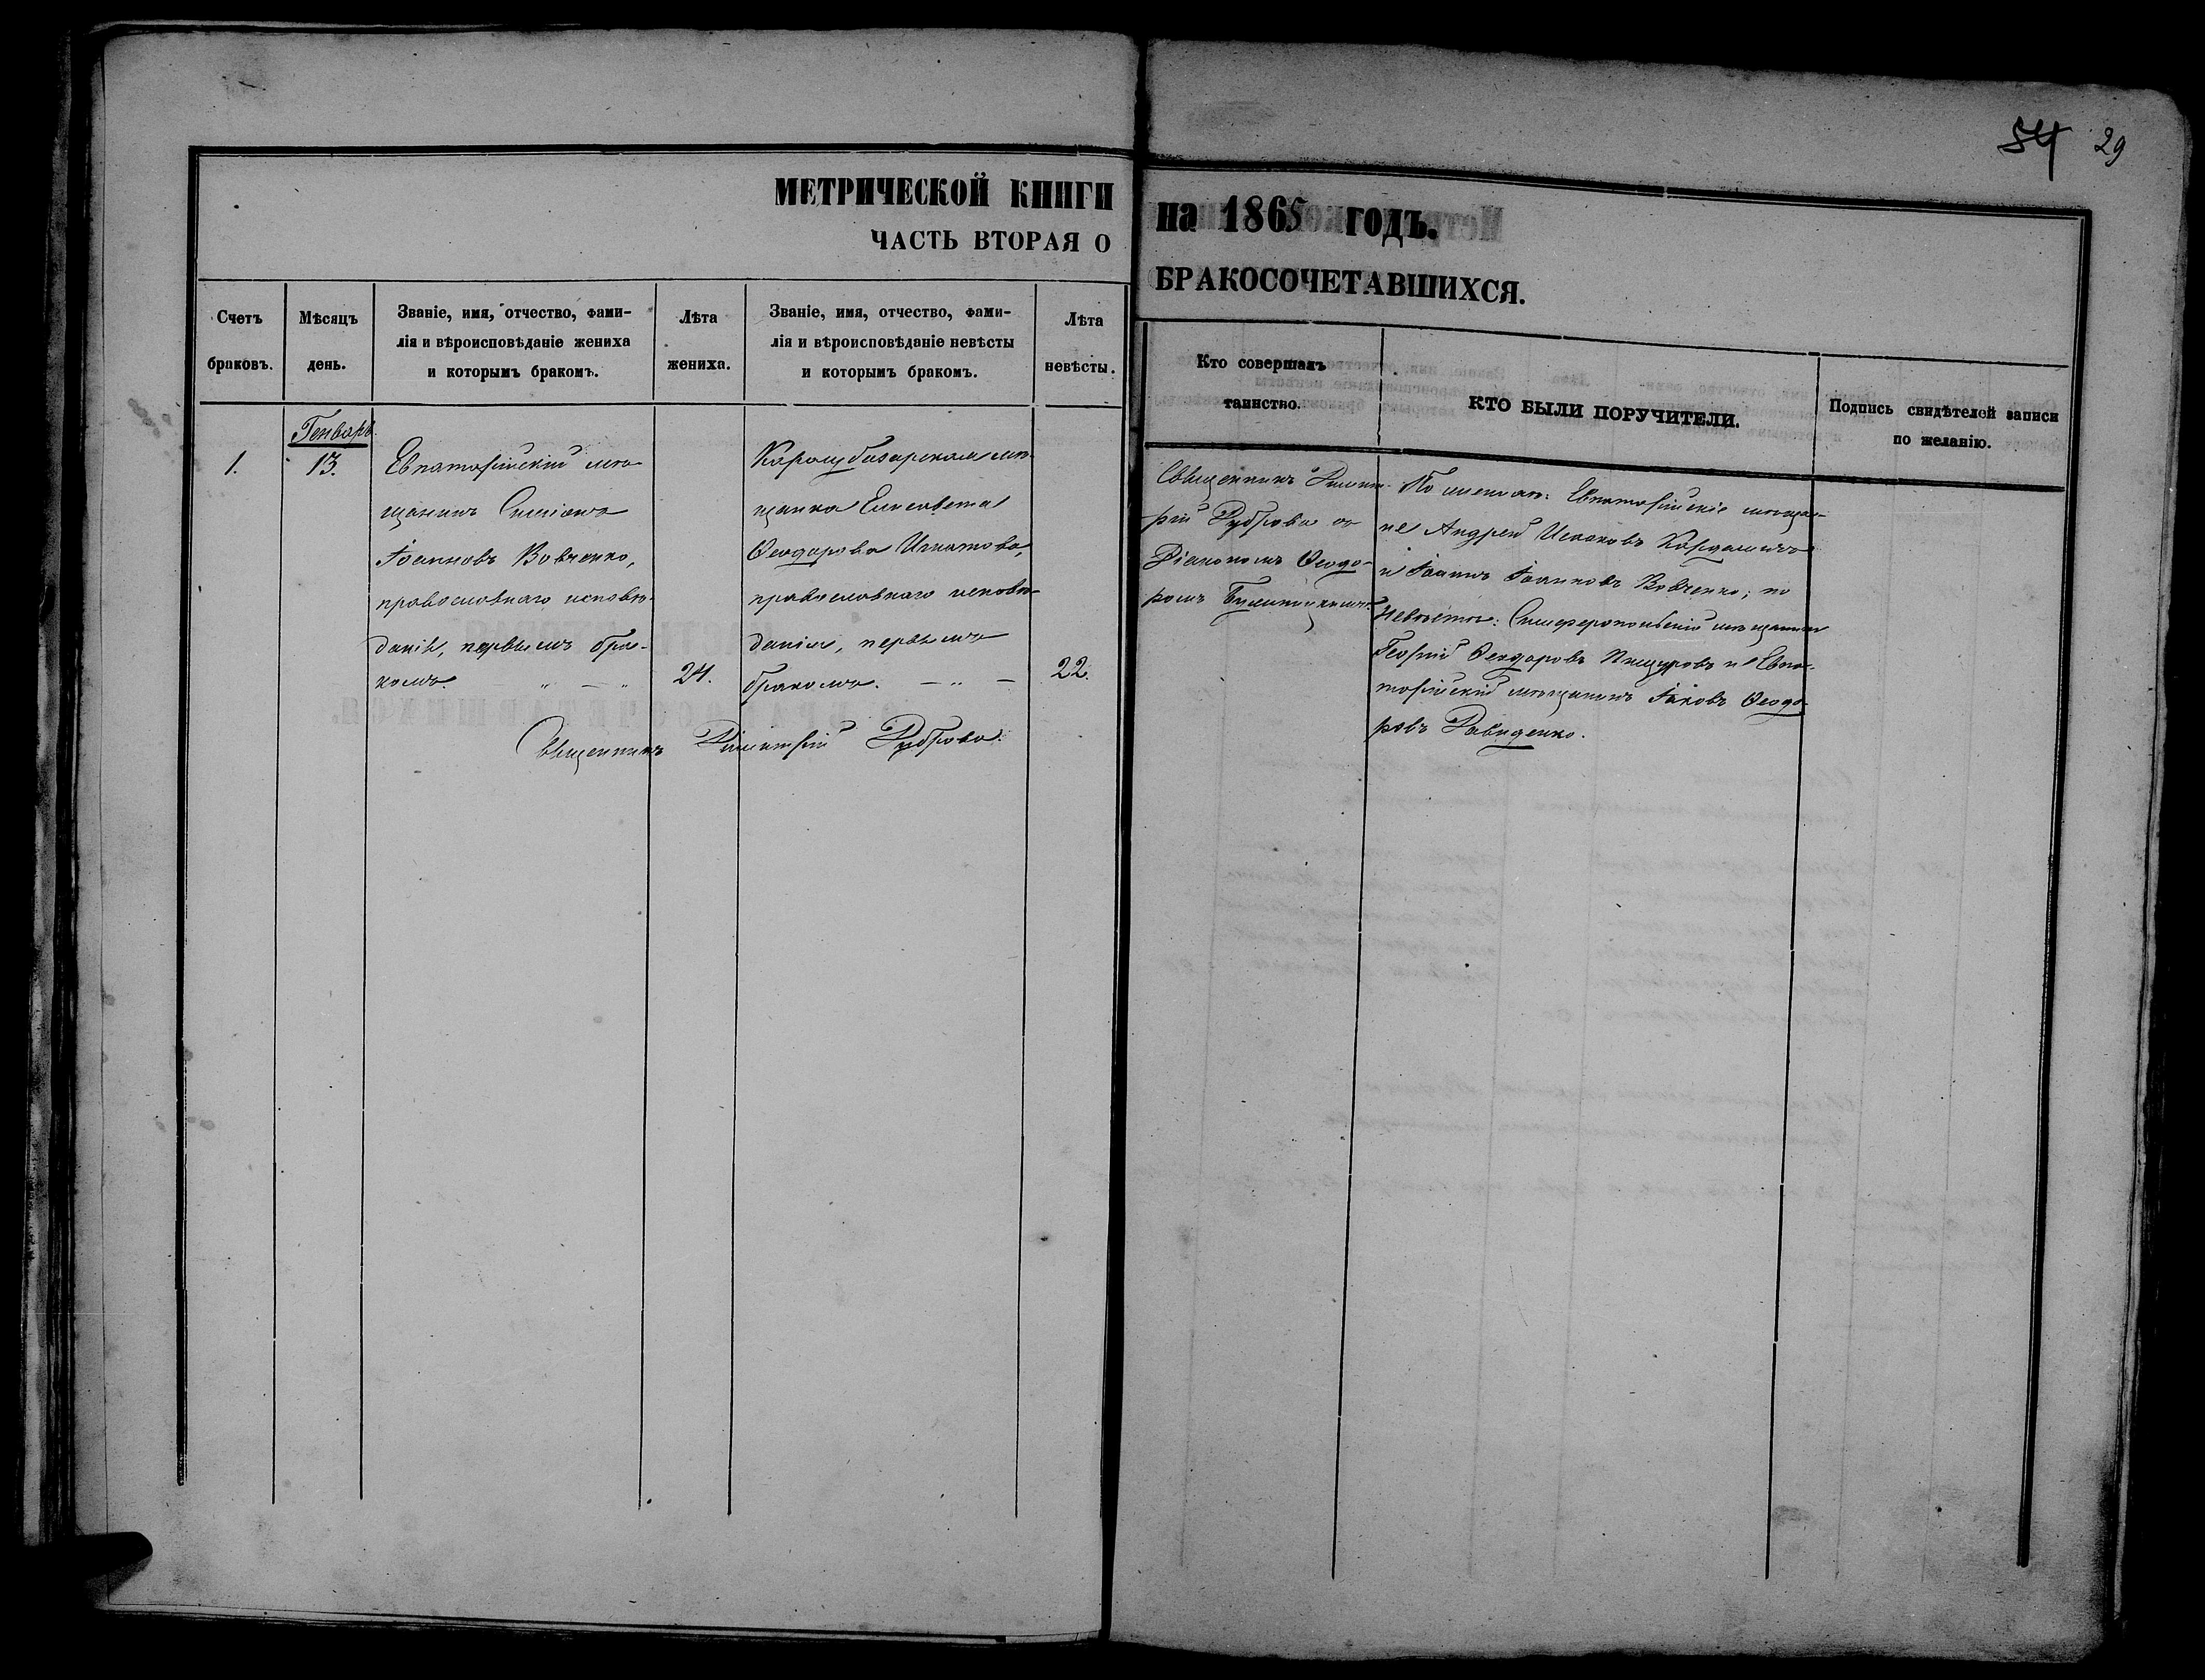 54 29
МЕТРИЧЕСКОЙ КНИГИ на 1865 годъ.
ЧАСТЬ ВТОРАЯ О БРАКОСОЧЕТАВШИХСЯ.
Счетъ
браковъ.
Мѣсяцъ
день.
Званіе, имя, отчество, фами-
лія и вѣроисповѣданіе жениха
и которымъ бракомъ.
Лѣта
жениха.
Званіе, имя, отчество, фами-
лія и вѣроисповѣданіе невѣсты
и которымъ бракомъ.
Лѣта
невѣсты.
Кто совершалъ
таинство.
КТО БЫЛИ ПОРУЧИТЕЛИ.
Подпись свидѣтелей записи
по желанію.
Генварь
1.
13.
Евпаторійскій мѣ-
щанинъ Симеонъ
Іоанновъ Вовченко,
православнаго исповѣ-
данія, первымъ бра-
комъ.
24.
Карасубазарская мѣ-
щанка Елисавета
Ѳеодорова Игнатова,
православнаго исповѣ-
данія, первымъ
бракомъ.
22.
Священникъ Димитрій Дуброва.
Священникъ Димит-
рій Дуброва съ
Діакономъ Ѳеодо-
ромъ
По женихѣ: Евпаторійскіе мѣща-
не Андрей Исааковъ
и Іоаннъ Іоанновъ Вовченко; по
невѣстѣ: Симферопольскій мѣщанинъ
Георгій Ѳеодоровъ и Евпа-
торійскій мѣщанинъ Іаковъ Ѳеодо-
ровъ Давиденко.